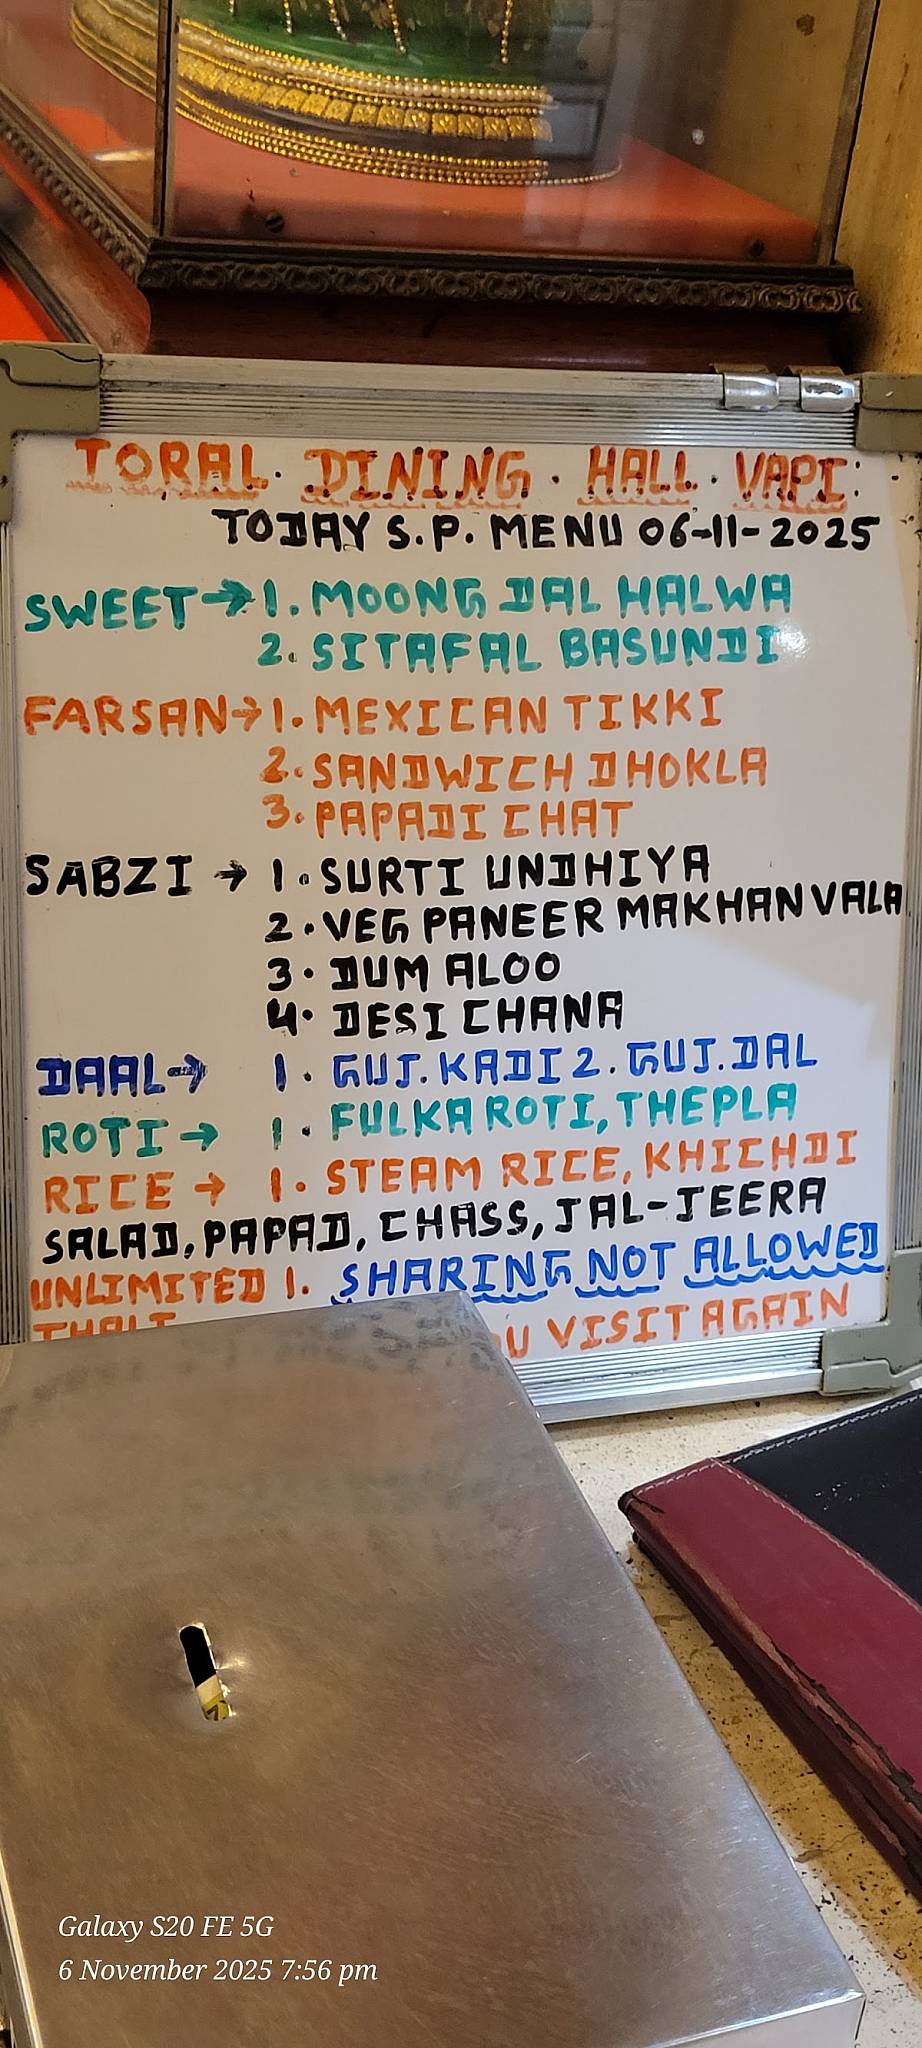 TORAL. DINING. HALL. VAPI:
TODAY S.P. MENU 06-11-2025
SWEET → 1. MOONG DAL HALWA
2. SITAFAL BASUNDI
FARSAN → 1. MEXICAN TIKKI
2. SANDWICH DHOKLA
3. PAPADI CHAT
SABZI → 1. SURTI UNDHIYA
2. VEG PANEER MAKHANVALA
3. DUM ALOO
4. DESI CHANA
DAAL → 1. GUJ. KADI 2. GUJ. DAL
ROTI → 1. FULKA ROTI, THEPLA
RICE → 1. STEAM RICE, KHICHDI
SALAD, PAPAD, CHASS, JAL-JEERA
UNLIMITED 1. SHARING NOT ALLOWED
THALI VISIT AGAIN
Galaxy S20 FE 5G
6 November 2025 7:56 pm